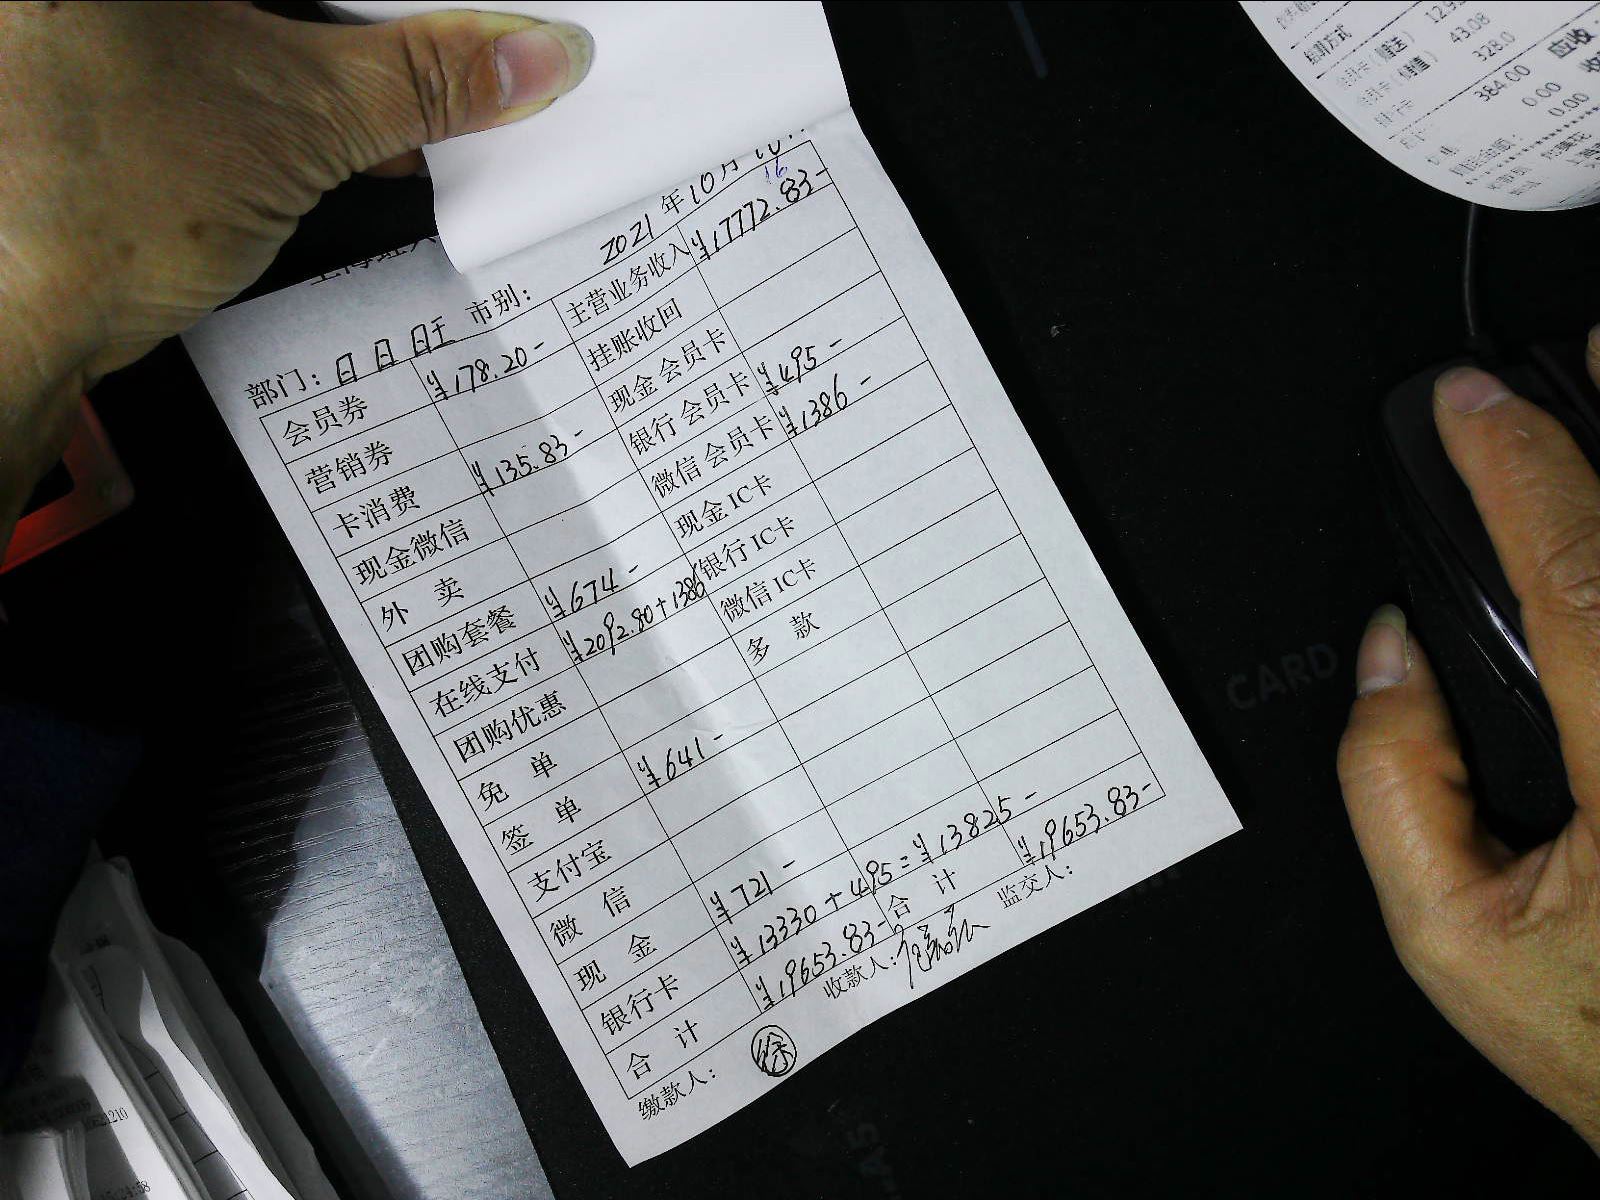 2021年10月
16
部门：日日旺 市别：
会员券 ¥178.20- 主营业务收入 ¥17772.83-
营销券 挂账收回
卡消费 ¥135.83- 现金会员卡
现金微信 银行会员卡 ¥495-
外 卖 微信会员卡 ¥1386-
团购套餐 ¥674- 现金IC卡
在线支付 ¥2092.80+1386 银行IC卡
团购优惠 微信IC卡
免 单 多 款
签 单 ¥641-
支付宝
微 信
现 金 ¥721-
银行卡 ¥13330+495=¥13825-
合 计 ¥19653.83- 合 计 ¥19653.83-
缴款人： 徐 收款人： 监交人：
结算方式
43.08
328.0
应收
384.00
0.00
0.00
CARD